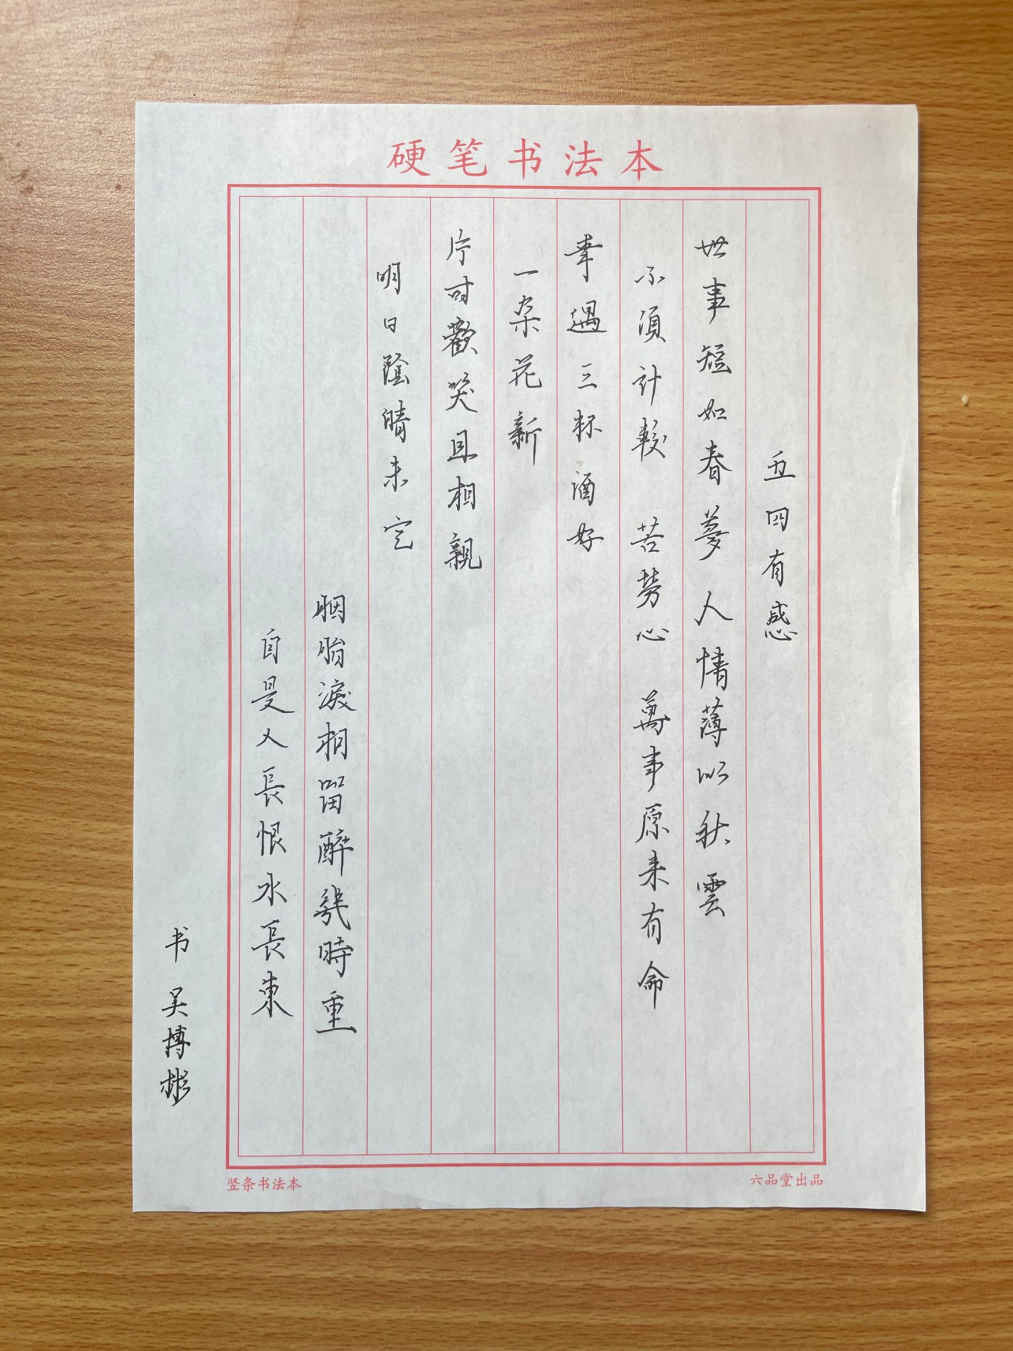 硬笔书法本
五四有感
世事短如春夢人情薄似秋雲
不須計較 苦勞心 萬事原来有命
幸遇三杯酒好
一朵花新
片时歡笑且相親
明日陰晴未定
胭脂淚相留醉幾時重
自是人長恨水長東
书 吴博彬
竖条书法本
六品堂出品